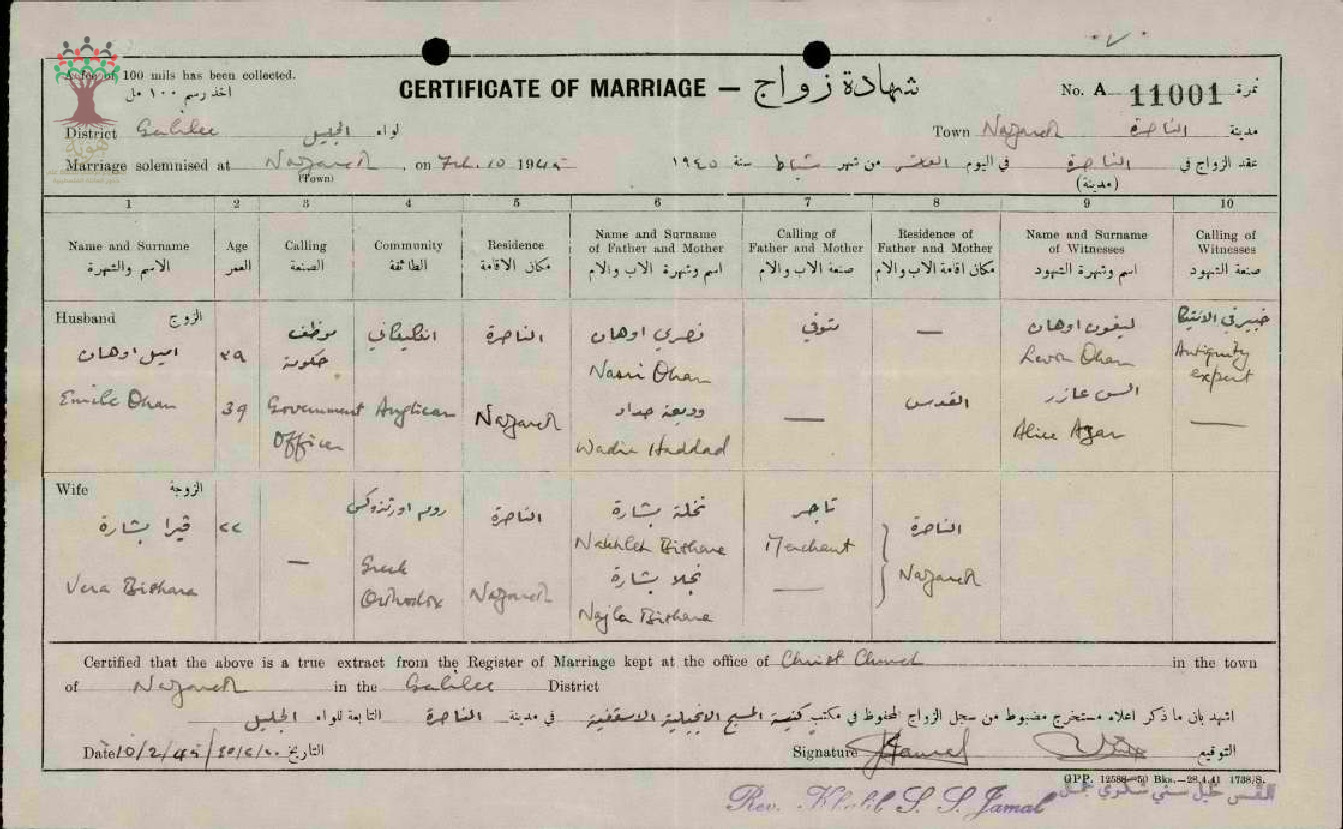 A fee of 100 mils has been collected.
اخذ رسم ١٠٠ مل
CERTIFICATE OF MARRIAGE — شهادة زواج
No. A 11001 نمرة
District Galilee الجليل لواء
Town Nazareth الناصرة مدينة
Marriage solemnised at Nazareth, on Feb. 10 1945
(Town)
عقد الزواج في الناصرة في اليوم العاشر من شهر شباط سنة ١٩٤٥
(مدينة)
1 2 3 4 5 6 7 8 9 10
Name and Surname
الاسم والشهرة
Age
العمر
Calling
الصنعة
Community
الطائفة
Residence
مكان الاقامة
Name and Surname
of Father and Mother
اسم وشهرة الاب والام
Calling of
Father and Mother
صنعة الاب والام
Residence of
Father and Mother
مكان اقامة الاب والام
Name and Surname
of Witnesses
اسم وشهرة الشهود
Calling of
Witnesses
صنعة الشهود
Husband الزوج
اميل اوهان
Emile Ohan
٣٩
39
موظف
حكومة
Government
Officer
انكليكاني
Anglican
الناصرة
Nazareth
نصري اوهان
Nasri Ohan
وديعة حداد
Wadia Haddad
متوفي
—
—
القدس
ليفون اوهان
Levon Ohan
الس عازر
Alice Azar
Antiquity
expert
—
Wife الزوجة
ڤيرا بشارة
Vera Bishara
٢٢
—
روم اورثوذكس
Greek
Orthodox
الناصرة
Nazareth
نخلة بشارة
Nakhleh Bishara
نجلا بشارة
Najla Bishara
تاجر
Merchant
—
الناصرة
Nazareth
Certified that the above is a true extract from the Register of Marriage kept at the office of Christ Church in the town
of Nazareth in the Galilee District
اشهد بان ما ذكر اعلاه مستخرج مضبوط من سجل الزواج المحفوظ في مكتب كنيسة المسيح الانجيلية الاسقفية في مدينة الناصرة التابعة للواء الجليل
Date 10/2/45 التاريخ
Signature التوقيع
GPP. 12588—50 Bks.—28.4.41 1738/S.
Rev. Khalil S. S. Jamal القس خليل سني شكري جمل